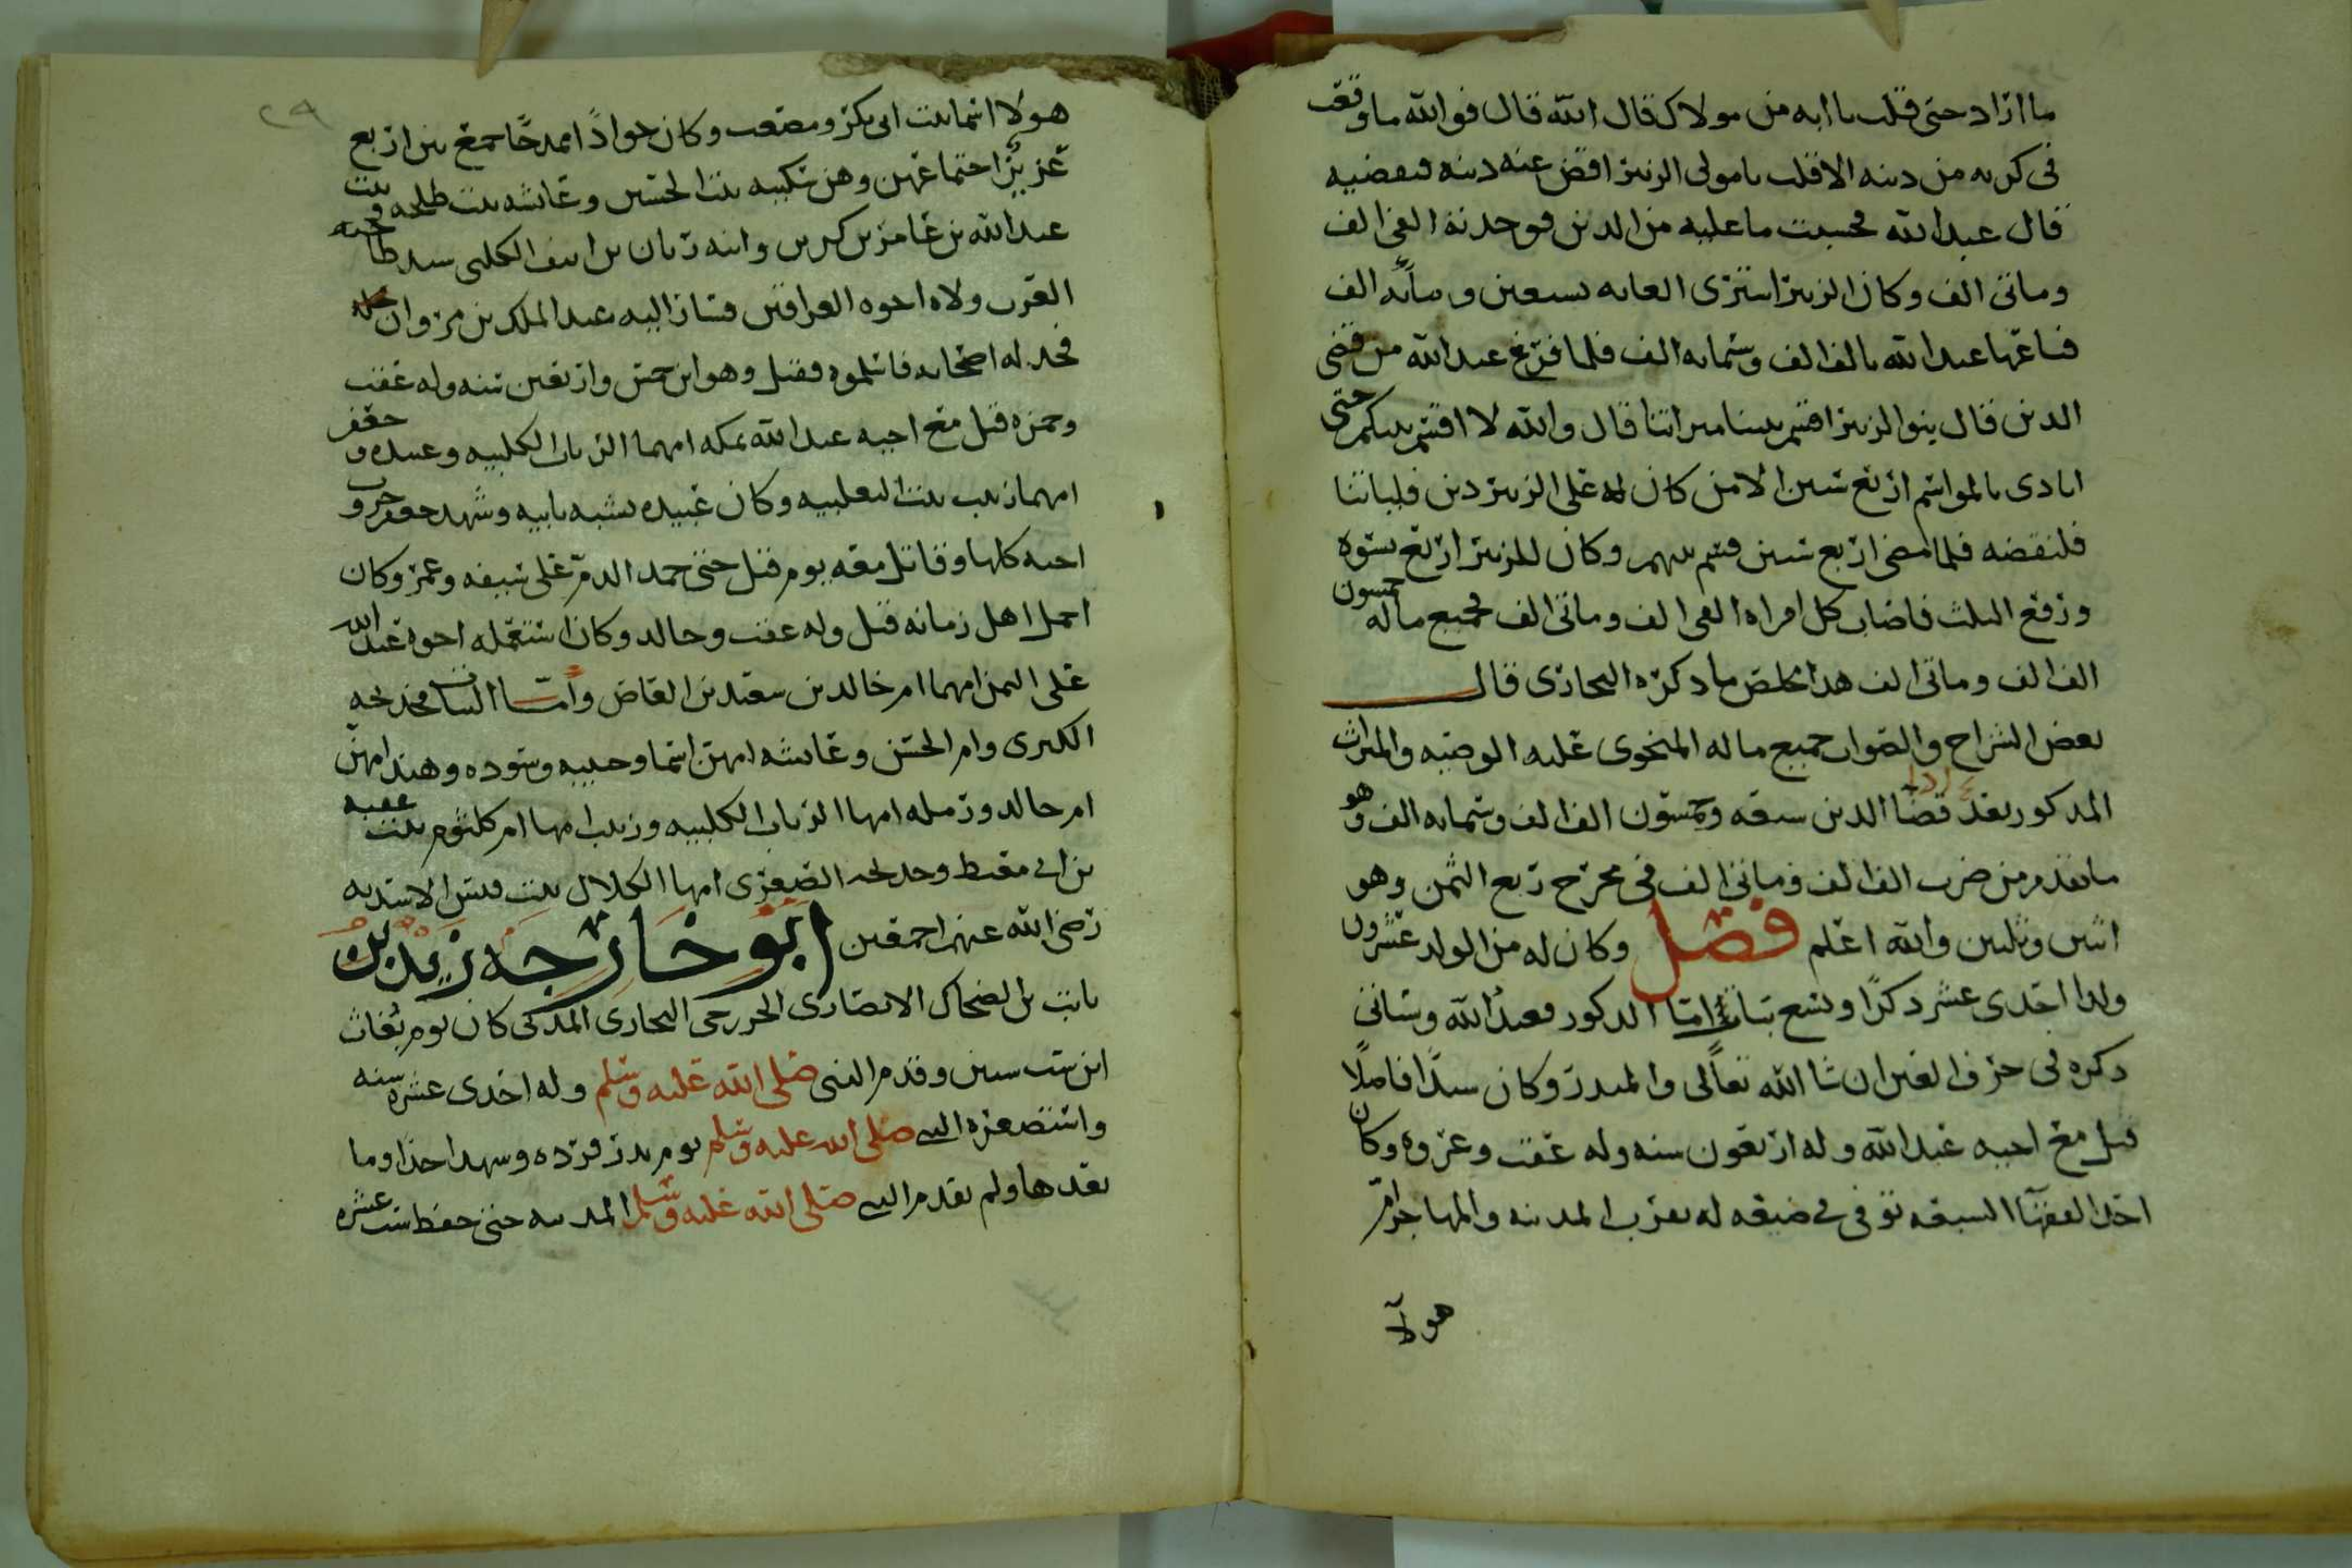 ما اراد حتى قلت يا ابه من مولاك قال الله قال فوالله ما وقعت
في كربه من دينه الا قلت يا مولى الزبير اقض عنه دينه فيقضيه
قال عبد الله فحسبت ما عليه من الدين فوجدته الفي الف
ومائتى الف وكان الزبير اشترى الغابه بسبعين ومائه الف
فباعها عبد الله بالف الف وستمايه الف فلما فرغ عبد الله من قضى
الدين قال بنو الزبير اقسم بيننا ميراثنا قال والله لا اقسم بينكم حتى
انادى بالمواسم اربع سنين الا من كان له على الزبير دين فلياتنا
فلنقضه فلما مضى اربع سنين قسم بينهم وكان للزبير اربع نسوه
ورفع الثلث فاصاب كل امراه الفى الف ومائتى الف فجميع ماله خمسون
الف الف ومائتى الف هذا ملخص ما ذكره البخارى قال
بعض الشراح والصواب جميع ماله المحتوى عليه الوصيه والميراث
المذكور بعد قضا الدين سبعه وخمسون الف الف وستمايه الف وهو
ما تقدم من ضرب الف الف ومائتى الف فى مخرج ربع الثمن وهو
اثنين وثلثين والله اعلم فصل وكان له من الولد عشرون
ولدا احدى عشر ذكرًا وتسع بنات اما الذكور فعبد الله وسياتى
ذكره فى حرف العين ان شا الله تعالى والمنذر وكان سيدًا فاضلًا
قتل مع اخيه عبد الله وله اربعون سنه وله عقب وعروه وكان
احد الفقهآ السبعه توفى فى ضيعه له بقرب المدينه والمهاجر ام
هولآ
٢٩
هولا اسما بنت ابى بكر ومصعب وكان جوادًا ممدحًا جمع بين اربع
عزيز اجتماعهن وهن سكينه بنت الحسين وعائشه بنت طلحه وبنت
عبد الله بن عامر بن كريز وابنه زبان بن انيف الكلبى سيد ضاحيه
العرب ولاه اخوه العراقين فسار اليه عبد الملك بن مروان
فخذله اصحابه فاسلموه فقتل وهو ابن خمس واربعين سنه وله عقب
وحمزه قتل مع اخيه عبد الله بمكه امهما الرباب الكلبيه وعبيده وجعفر
امهما زينب بنت الثعلبيه وكان عبيده يشبه بابيه وشهد جعفر حروب
اخيه كلها وقاتل معه يوم قتل حتى جمد الدم على سيفه وعمر وكان
اجمل اهل زمانه قتل وله عقب وخالد وكان استعمله اخوه عبد الله
على اليمن امهما ام خالد بن سعيد بن العاص واما البنات فخديجه
الكبرى وام الحسن وعائشه امهن اسما وحبيبه وسوده وهند امهن
ام خالد ورمله امها الرباب الكلبيه وزينب امها ام كلثوم بنت عقبه
بن ابى معيط وخديجه الصغرى امها الحلال بنت قيس الاسديه
رضى الله عنهم اجمعين ابو خارجه زيد بن
ثابت بن الضحاك الانصارى الخزرجى النجارى المدنى كان يوم بُعاث
ابن ست سنين وقدم النبى صلى الله عليه وسلم وله احدى عشره سنه
واستصغره النبى صلى الله عليه وسلم يوم بدر فرده وشهد احدًا وما
بعدها ولم يقدم النبى صلى الله عليه وسلم المدينه حتى حفظ ست عشره